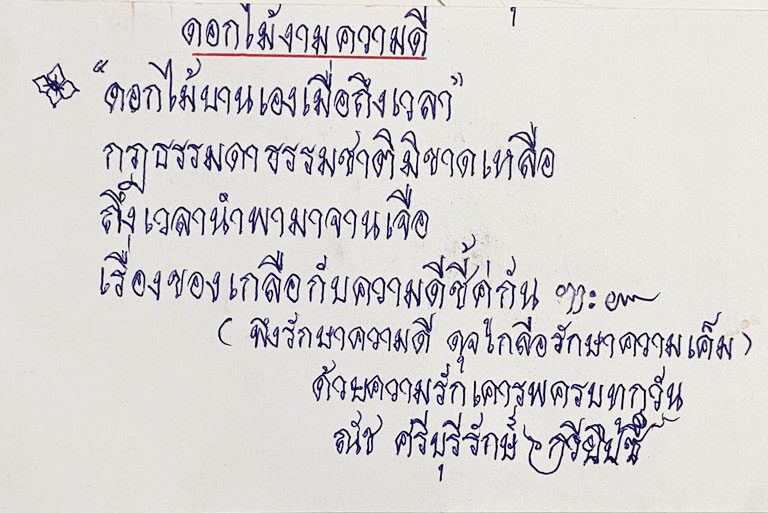 ดอกไม้งามความดี
"ดอกไม้บานเองเมื่อถึงเวลา"
กฎธรรมดาธรรมชาติมิขาดเหลือ
ถึงเวลานำพามาจานเจือ
เรื่องของเกลือกับความดีชี้ค่กัน
(พึงรักษาความดี ดุจเกลือรักษาความเค็ม)
ด้วยความรักเคารพครบทุกวัน
ณัช ศรีบุรีรักษ์